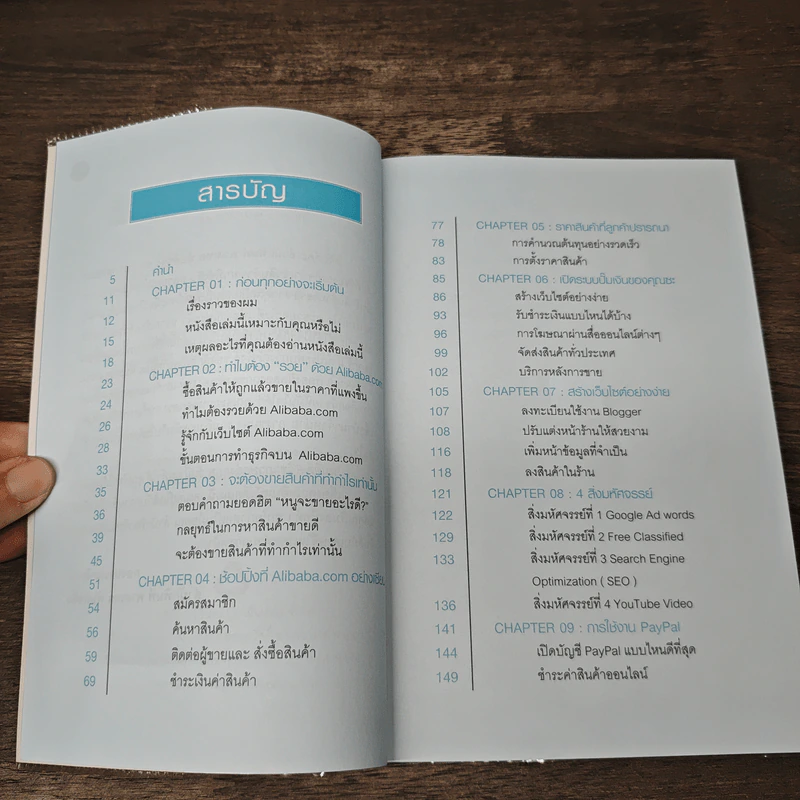 สารบัญ
5 คำนำ
11 CHAPTER 01 : ก่อนทุกอย่างจะเริ่มต้น
12 เรื่องราวของผม
15 หนังสือเล่มนี้เหมาะกับคุณหรือไม่
18 เหตุผลอะไรที่คุณต้องอ่านหนังสือเล่มนี้
23 CHAPTER 02 : ทำไมต้อง "รวย" ด้วย Alibaba.com
24 ซื้อสินค้าให้ถูกแล้วขายในราคาที่แพงขึ้น
26 ทำไมต้องรวยด้วย Alibaba.com
28 รู้จักกับเว็บไซต์ Alibaba.com
33 ขั้นตอนการทำธุรกิจบน Alibaba.com
35 CHAPTER 03 : จะต้องขายสินค้าที่ทำกำไรเท่านั้น
36 ตอบคำถามยอดฮิต "หนูจะขายอะไรดี?"
39 กลยุทธ์ในการหาสินค้าขายดี
45 จะต้องขายสินค้าที่ทำกำไรเท่านั้น
51 CHAPTER 04 : ช้อปปิ้งที่ Alibaba.com อย่างเซีย
54 สมัครสมาชิก
56 ค้นหาสินค้า
59 ติดต่อผู้ขายและ สั่งซื้อสินค้า
69 ชำระเงินค่าสินค้า
77 CHAPTER 05 : ราคาสินค้าที่ลูกค้าปรารถนา
78 การคำนวณต้นทุนอย่างรวดเร็ว
83 การตั้งราคาสินค้า
85 CHAPTER 06 : เปิดระบบปั๊มเงินของคุณซะ
86 สร้างเว็บไซต์อย่างง่าย
93 รับชำระเงินแบบไหนได้บ้าง
96 การโฆษณาผ่านสื่อออนไลน์ต่างๆ
99 จัดส่งสินค้าทั่วประเทศ
102 บริการหลังการขาย
105 CHAPTER 07 : สร้างเว็บไซต์อย่างง่าย
107 ลงทะเบียนใช้งาน Blogger
108 ปรับแต่งหน้าร้านให้สวยงาม
116 เพิ่มหน้าข้อมูลที่จำเป็น
118 ลงสินค้าในร้าน
121 CHAPTER 08 : 4 สิ่งมหัศจรรย์
122 สิ่งมหัศจรรย์ที่ 1 Google Ad words
129 สิ่งมหัศจรรย์ที่ 2 Free Classified
133 สิ่งมหัศจรรย์ที่ 3 Search Engine
Optimization ( SEO )
136 สิ่งมหัศจรรย์ที่ 4 YouTube Video
141 CHAPTER 09 : การใช้งาน PayPal
144 เปิดบัญชี PayPal แบบไหนดีที่สุด
149 ชำระค่าสินค้าออนไลน์